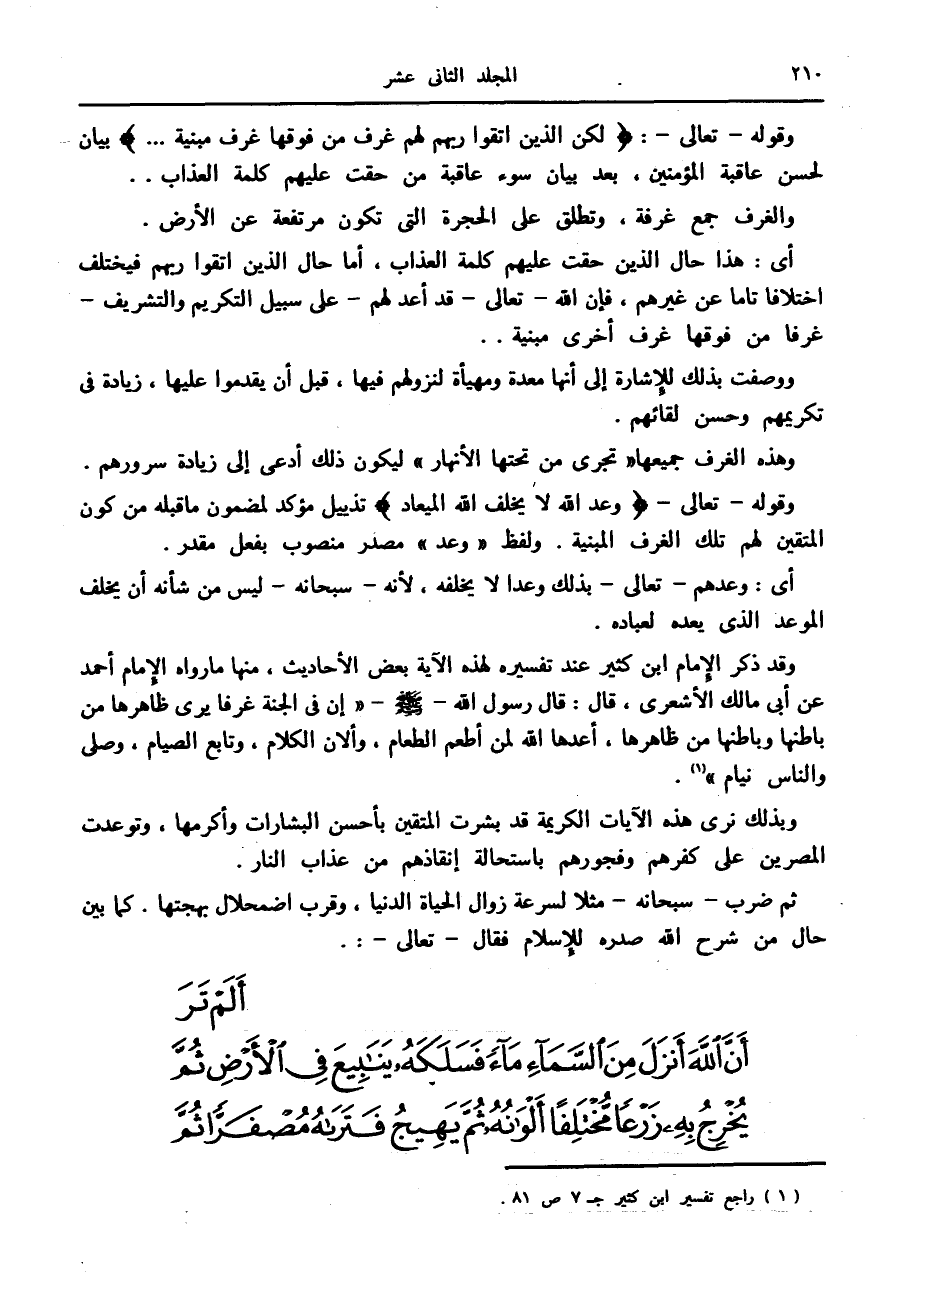 ٢١٠ المجلد الثانى عشر
وقوله - تعالى - : ﴿ لكن الذين اتقوا ربهم لهم غرف من فوقها غرف مبنية ... ﴾ بيان
لحسن عاقبة المؤمنين ، بعد بيان سوء عاقبة من حقت عليهم كلمة العذاب . .
والغرف جمع غرفة ، وتطلق على الحجرة التى تكون مرتفعة عن الأرض .
أى : هذا حال الذين حقت عليهم كلمة العذاب ، أما حال الذين اتقوا ربهم فيختلف
اختلافا تاما عن غيرهم ، فإن الله - تعالى - قد أعد لهم - على سبيل التكريم والتشريف -
غرفا من فوقها غرف أخرى مبنية . .
ووصفت بذلك للإشارة إلى أنها معدة ومهيأة لنزولهم فيها ، قبل أن يقدموا عليها ، زيادة فى
تكريمهم وحسن لقائهم .
وهذه الغرف جميعها« تجرى من تحتها الأنهار » ليكون ذلك أدعى إلى زيادة سرورهم .
وقوله - تعالى - ﴿ وعد الله لا يخلف الله الميعاد ﴾ تذييل مؤكد لمضمون ماقبله من كون
المتقين لهم تلك الغرف المبنية . ولفظ « وعد » مصدر منصوب بفعل مقدر .
أى : وعدهم - تعالى - بذلك وعدا لا يخلفه ، لأنه - سبحانه - ليس من شأنه أن يخلف
الموعد الذى يعده لعباده .
وقد ذكر الإمام ابن كثير عند تفسيره لهذه الآية بعض الأحاديث ، منها مارواه الإمام أحمد
عن أبى مالك الأشعرى ، قال : قال رسول الله - ﷺ - « إن فى الجنة غرفا يرى ظاهرها من
باطنها وباطنها من ظاهرها ، أعدها الله لمن أطعم الطعام ، وألان الكلام ، وتابع الصيام ، وصلى
والناس نيام »(١) .
وبذلك نرى هذه الآيات الكريمة قد بشرت المتقين بأحسن البشارات وأكرمها ، وتوعدت
المصرين على كفرهم وفجورهم باستحالة إنقاذهم من عذاب النار .
ثم ضرب - سبحانه - مثلا لسرعة زوال الحياة الدنيا ، وقرب اضمحلال بهجتها . كما بين
حال من شرح الله صدره للإسلام فقال - تعالى - : .
أَلَمْ تَرَ
أَنَّ ٱللَّهَ أَنزَلَ مِنَ ٱلسَّمَآءِ مَآءً فَسَلَكَهُۥ يَنَٰبِيعَ فِى ٱلْأَرْضِ ثُمَّ
يُخْرِجُ بِهِۦ زَرْعًا مُّخْتَلِفًا أَلْوَٰنُهُۥ ثُمَّ يَهِيجُ فَتَرَىٰهُ مُصْفَرًّا ثُمَّ
( ١ ) راجع تفسير ابن كثير جـ ٧ ص ٨١ .